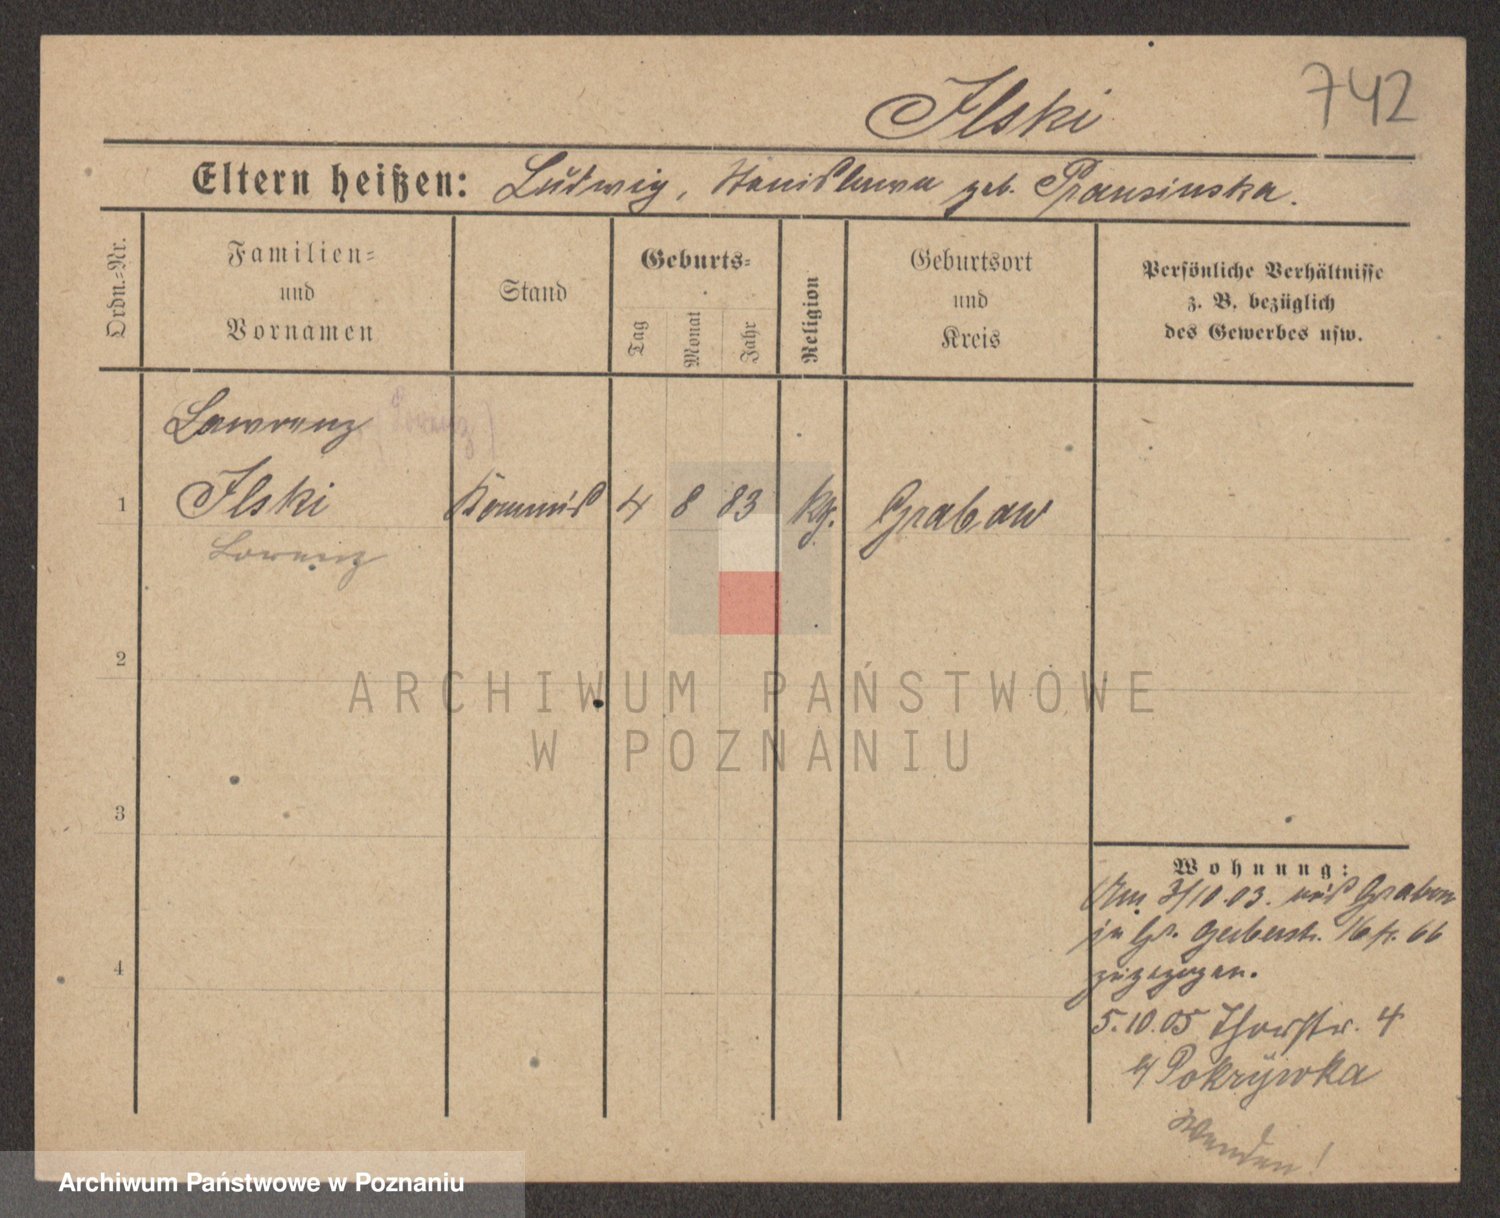 Ilski
742
Eltern heißen: Ludwig, Stanislawa geb. Prausinska.
Ordn.-Nr.
Familien-
und
Vornamen
Stand
Geburts-
Tag
Monat
Jahr
Religion
Geburtsort
und
Kreis
Persönliche Verhältnisse
z. B. bezüglich
des Gewerbes usw.
Lawrenz (Lorenz)
1 Ilski Kommis 4 8 83 kg. Grabow
Lorenz
2
3
4
Wohnung:
Am 3/10.03. aus Grabow
in Gr. Gerberstr. 16 66
zugezogen.
5.10.05 Thorstr. 4
b/ Pokrywka
Wenden!
ARCHIWUM PAŃSTWOWE
W POZNANIU
Archiwum Państwowe w Poznaniu